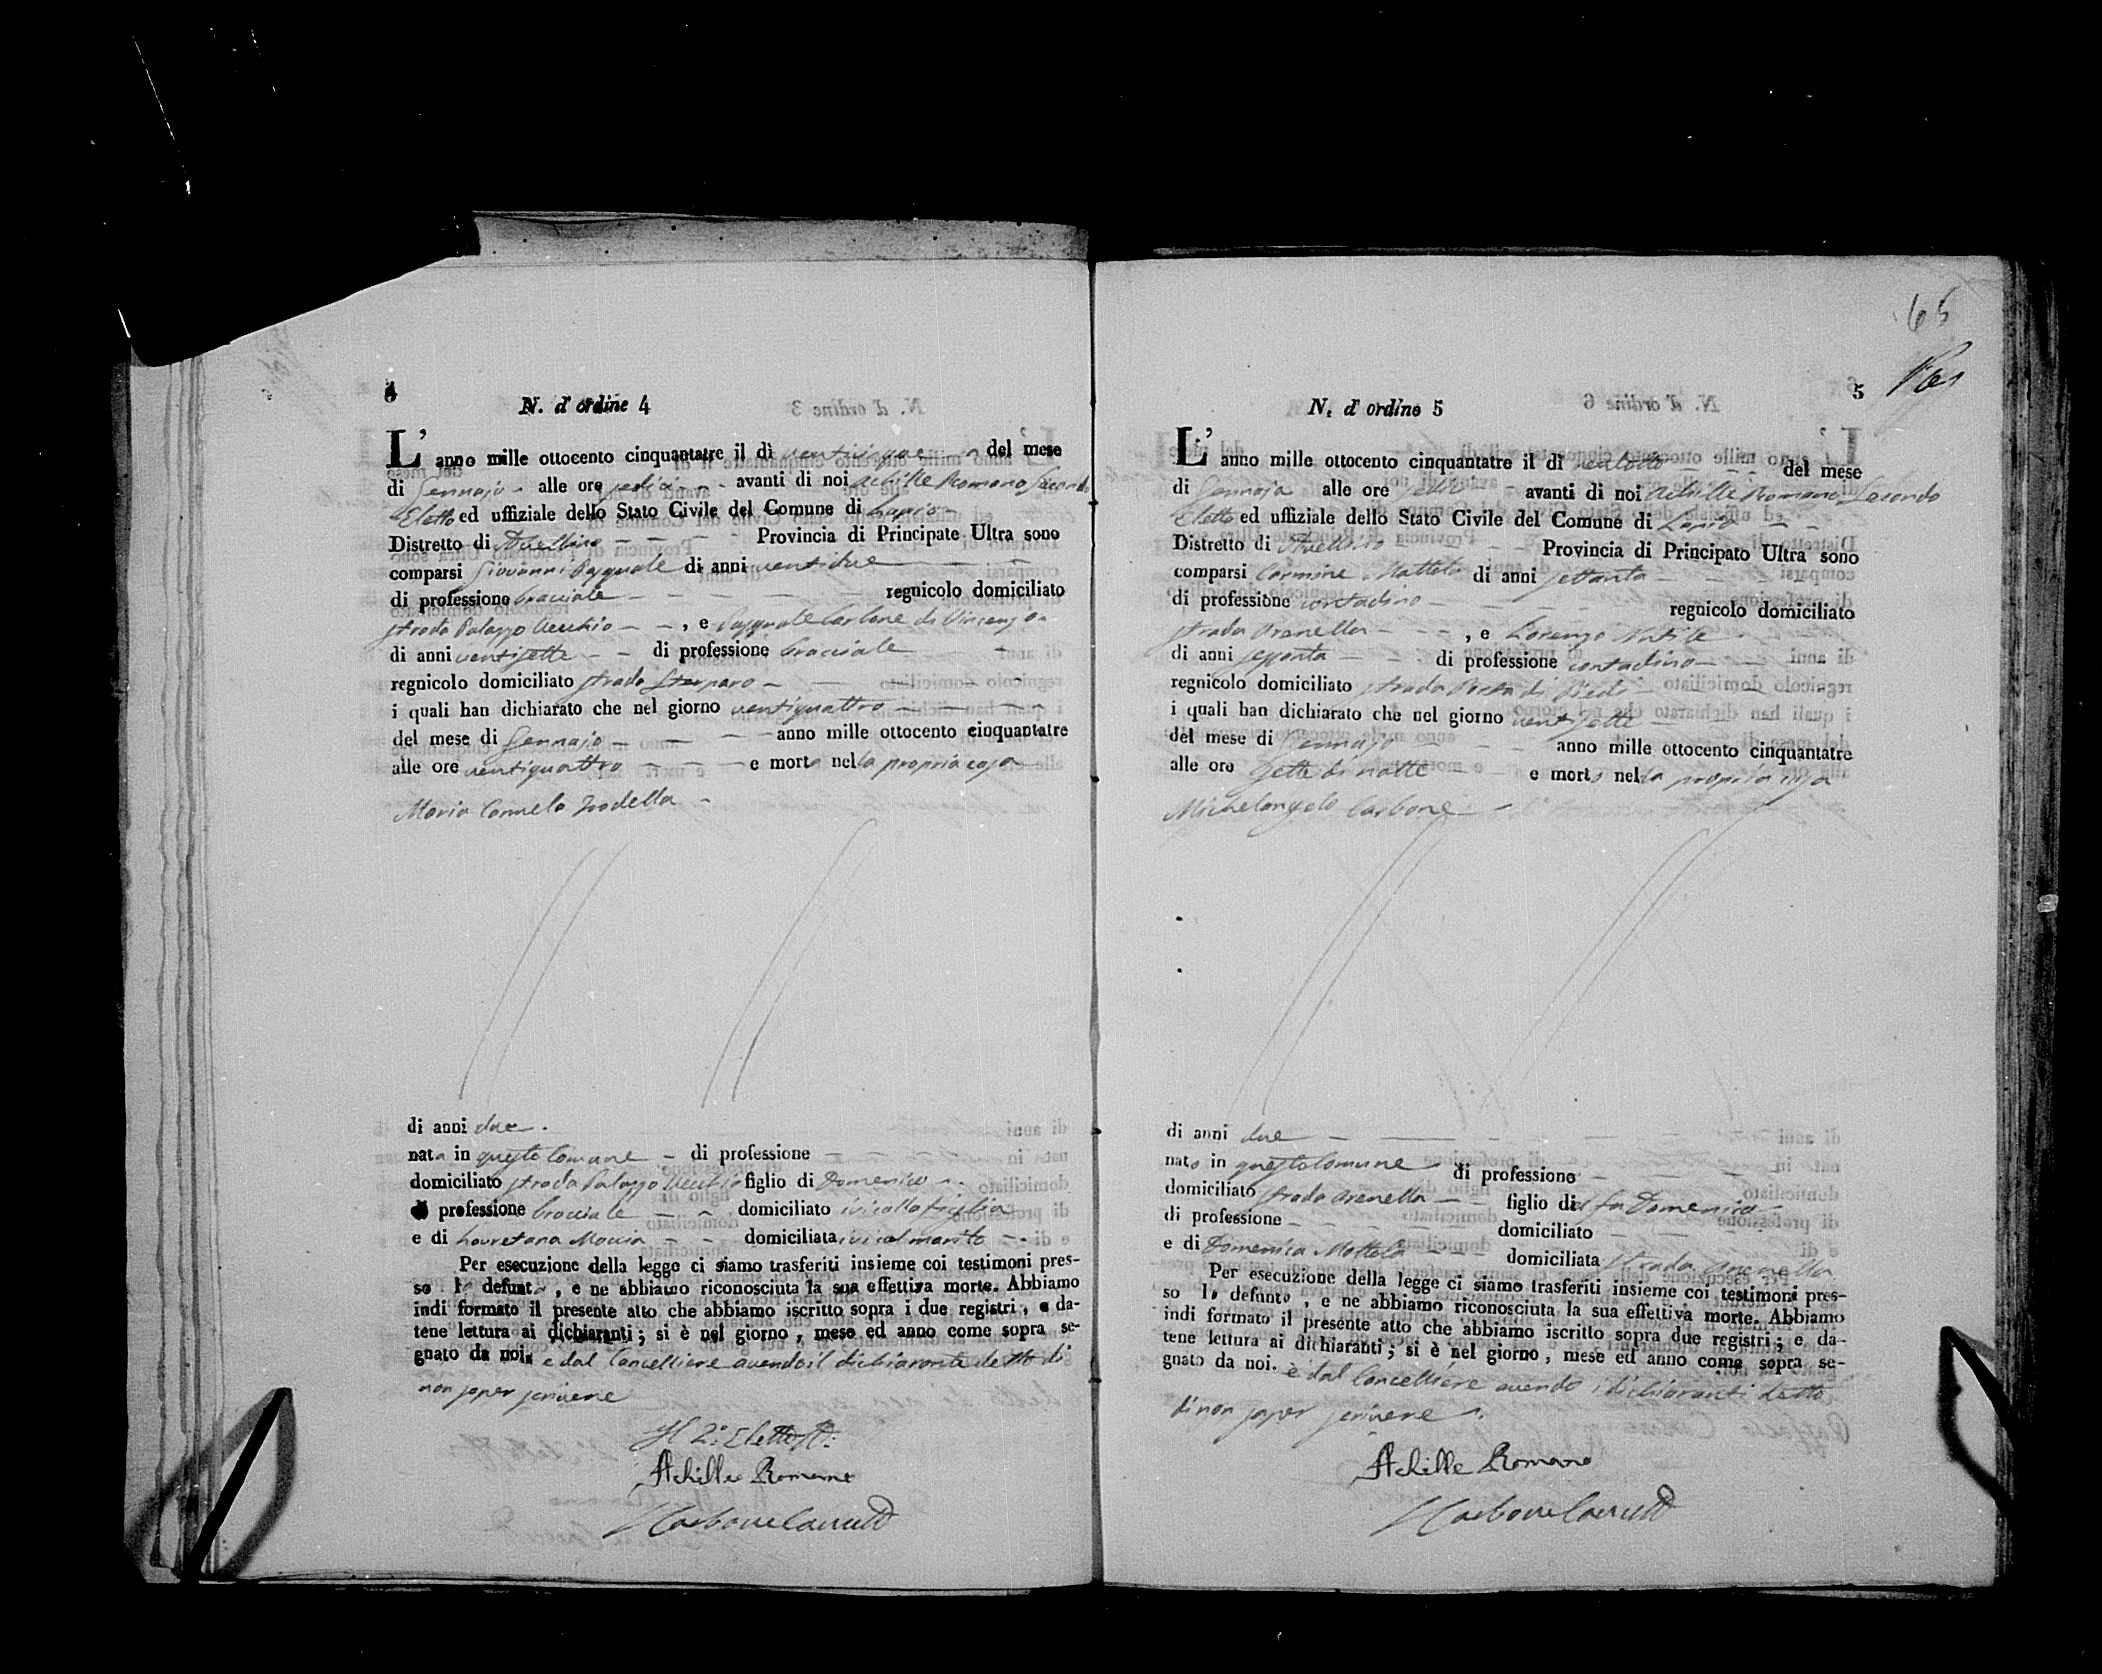 4
N. d' ordine 4
L' anno mille ottocento cinquantatre il dì venticinque del mese
di Gennajo alle ore sedici avanti di noi Achille Romano Secondo
Eletto ed uffiziale dello Stato Civile del Comune di Lapio
Distretto di Avellino Provincia di Principato Ultra sono
comparsi Giovanni Pasquale di anni ventidue
di professione bracciale regnicolo domiciliato
strada Palazzo Vecchio , e Pasquale Carbone di Vincenzo
di anni ventisette di professione bracciale
regnicolo domiciliato strada
i quali han dichiarato che nel giorno ventiquattro
del mese di Gennajo anno mille ottocento cinquantatre
alle ore ventiquattro e morta nella propria casa
Maria Carmela
di anni due.
nata in questo Comune di professione
domiciliato strada Palazzo Vecchio figlio di Domenico
di professione bracciale domiciliato ivi colla figlia
e di Lauretana domiciliata ivi col marito
Per esecuzione della legge ci siamo trasferiti insieme coi testimoni pres-
so la defunta , e ne abbiamo riconosciuta la sua effettiva morte. Abbiamo
indi formato il presente atto che abbiamo iscritto sopra i due registri, e da-
tene lettura ai dichiaranti ; si è nel giorno , mese ed anno come sopra se-
gnato da noi, e dal Cancelliere avendo il dichiarante detto di
non saper scrivere
Il 2.º Eletto
Achille Romano
Carbone
65
5
N. d' ordine 5
L' anno mille ottocento cinquantatre il dì ventotto del mese
di Gennajo alle ore avanti di noi Achille Romano Secondo
Eletto ed uffiziale dello Stato Civile del Comune di Lapio
Distretto di Avellino Provincia di Principato Ultra sono
comparsi Carmine Mottola di anni settanta
di professione contadino regnicolo domiciliato
strada Arenella , e Lorenzo
di anni di professione contadino
regnicolo domiciliato strada Porta di
i quali han dichiarato che nel giorno ventisette
del mese di Gennajo anno mille ottocento cinquantatre
alle ore sette di notte e morto nella propria casa
Michelangelo Carbone
di anni due
nato in questo Comune di professione
domiciliato strada Arenella figlio del fu Domenico
di professione domiciliato
e di Domenica Mottola domiciliata strada Arenella
Per esecuzione della legge ci siamo trasferiti insieme coi testimoni pres-
so lo defunto , e ne abbiamo riconosciuta la sua effettiva morte. Abbiamo
indi formato il presente atto che abbiamo iscritto sopra due registri ; e da-
tene lettura ai dichiaranti ; si è nel giorno , mese ed anno come sopra se-
gnato da noi. e dal Cancelliere avendo i dichiaranti detto
di non saper scrivere
Achille Romano
Carbone